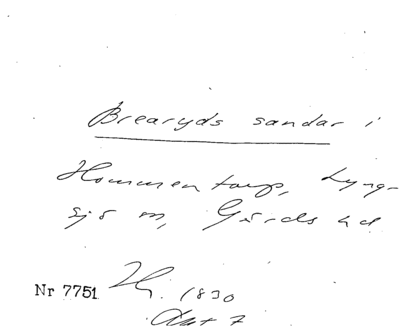 Brearyds sandar i
Hommentorp, Lyng-
sjö sn, Gärds hd
Nr 7751
1830
Akt 7